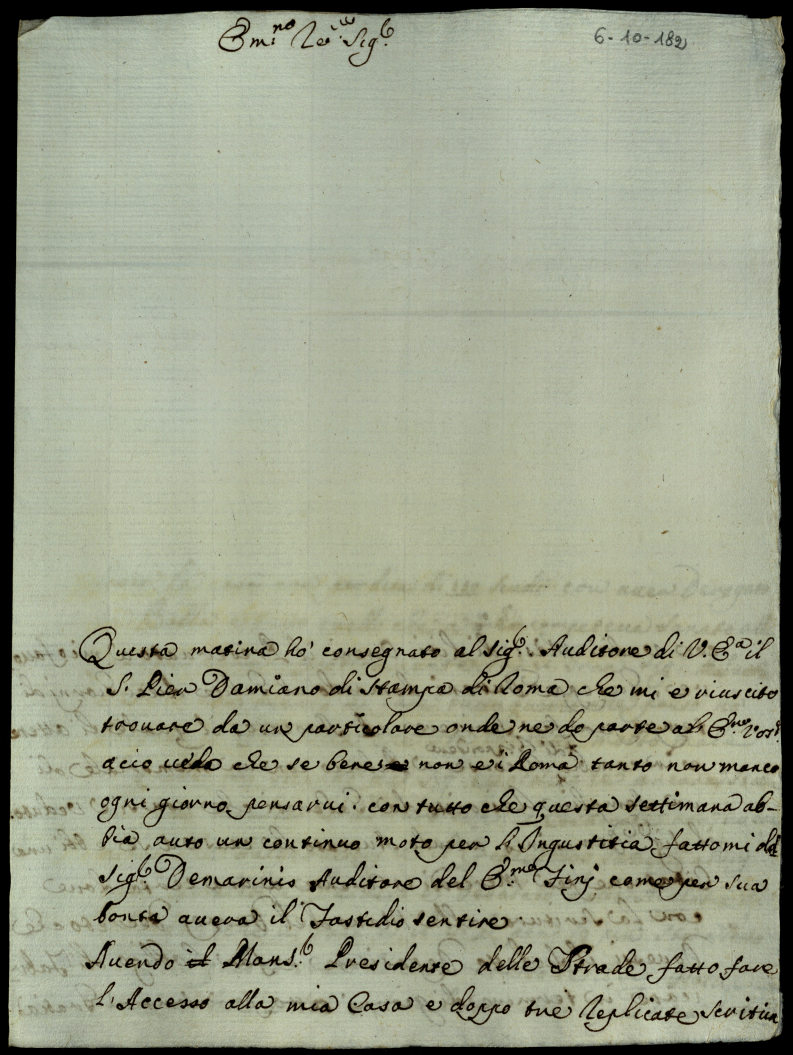 Em.no Re.mo Sig.r
6-10-182
Questa matina hò consegnato al sig.r Auditore di V. E.a il
S. Pier Damiano di stampa di Roma che mi e riuscito
trouare da un particolare onde ne do parte al E.mo Vos.
acio ueda che se bene non e i Roma tanto non manco
ogni giorno pensarui. con tutto che questa settimana ab-
bia auto un continuo moto per l'Ingustitia fattomi dal
Sig.r Demarinis Auditore del E.mo Finj come per sua
bontà aueua il Fastidio sentire.
Auendo il Mons.r Presidente delle Strade fatto fare
l'Accesso alla mia Casa e doppo tre Replicate scritture